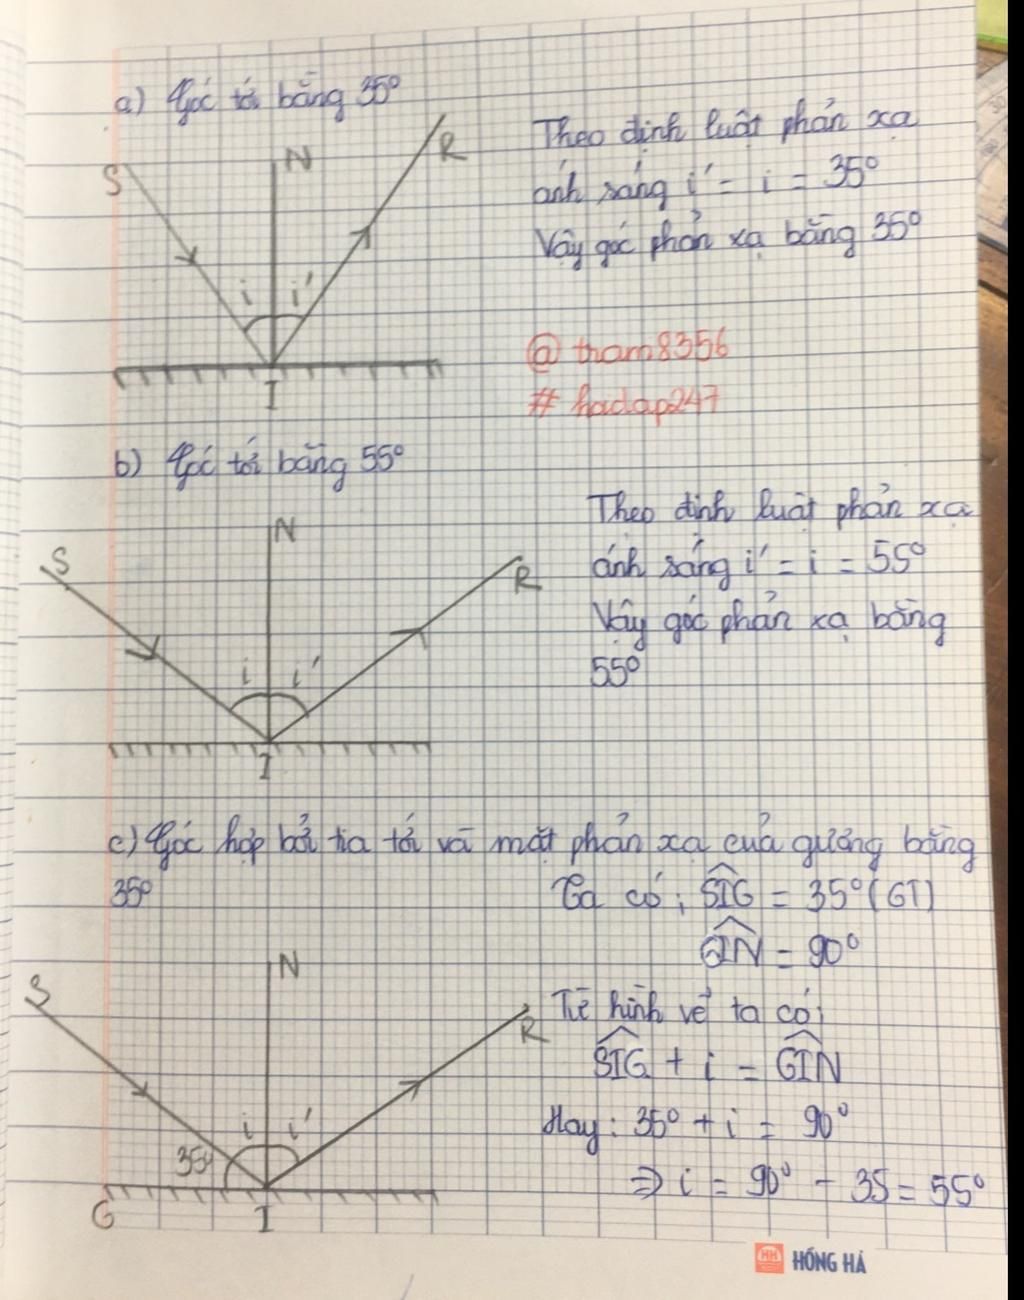 a) Góc tới bằng 35°
S N R
i i'
I
Theo định luật phản xạ
ánh sáng i' = i = 35°
Vậy góc phản xạ bằng 35°
@ tram8356
# hoidap247
b) Góc tới bằng 55°
S N R
i i'
I
Theo định luật phản xạ
ánh sáng i' = i = 55°
Vậy góc phản xạ bằng
55°
c) Góc hợp bởi tia tới và mặt phản xạ của gương bằng
35°
Ta có: SIG = 35° (GT)
GIN = 90°
S N R
35° i i'
G I
Từ hình vẽ ta có:
SIG + i = GIN
Hay: 35° + i = 90°
⇒ i = 90° - 35 = 55°
HH HỒNG HÀ